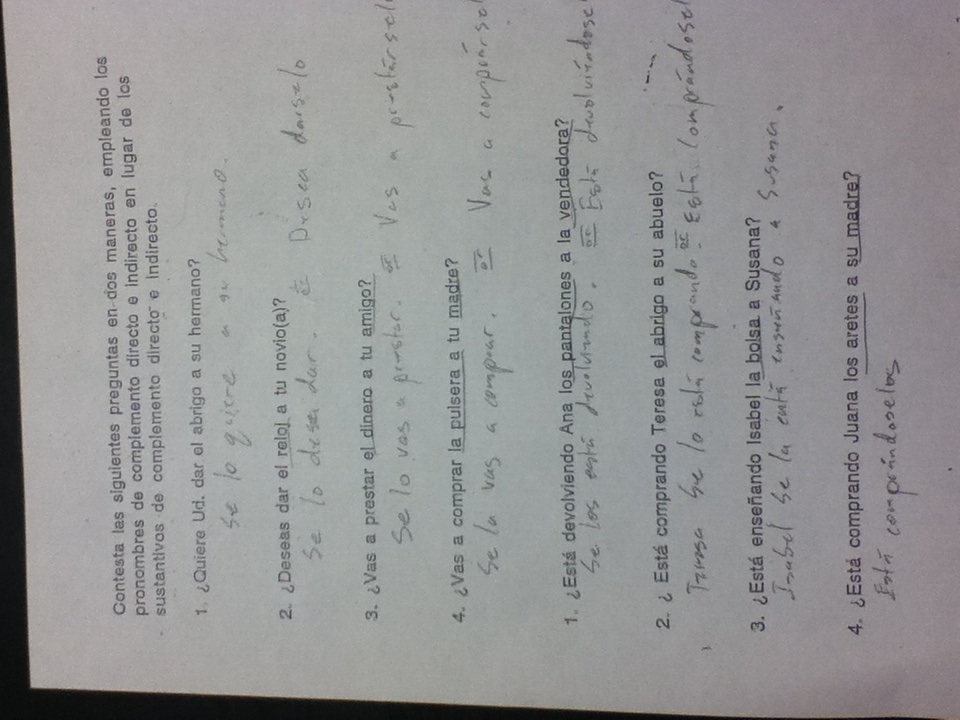 Contesta las siguientes preguntas en dos maneras, empleando los
pronombres de complemento directo e indirecto en lugar de los
sustantivos de complemento directo e indirecto.
1. ¿Quiere Ud. dar el abrigo a su hermano?
Se lo quiere a su hermano.
2. ¿Deseas dar el reloj a tu novio(a)?
Se lo desea dar. or Desea darselo
3. ¿Vas a prestar el dinero a tu amigo?
Se lo vas a prestar. or Vas a prestársel
4. ¿Vas a comprar la pulsera a tu madre?
Se la vas a comprar. or Vas a comprársel
1. ¿Está devolviendo Ana los pantalones a la vendedora?
Se los está devolviendo. or Está devolviéndose
2. ¿ Está comprando Teresa el abrigo a su abuelo?
Teresa se lo está comprando or Está comprándosel
3. ¿Está enseñando Isabel la bolsa a Susana?
Isabel se la está enseñando a Susana.
4. ¿Está comprando Juana los aretes a su madre?
Está comprándoselos